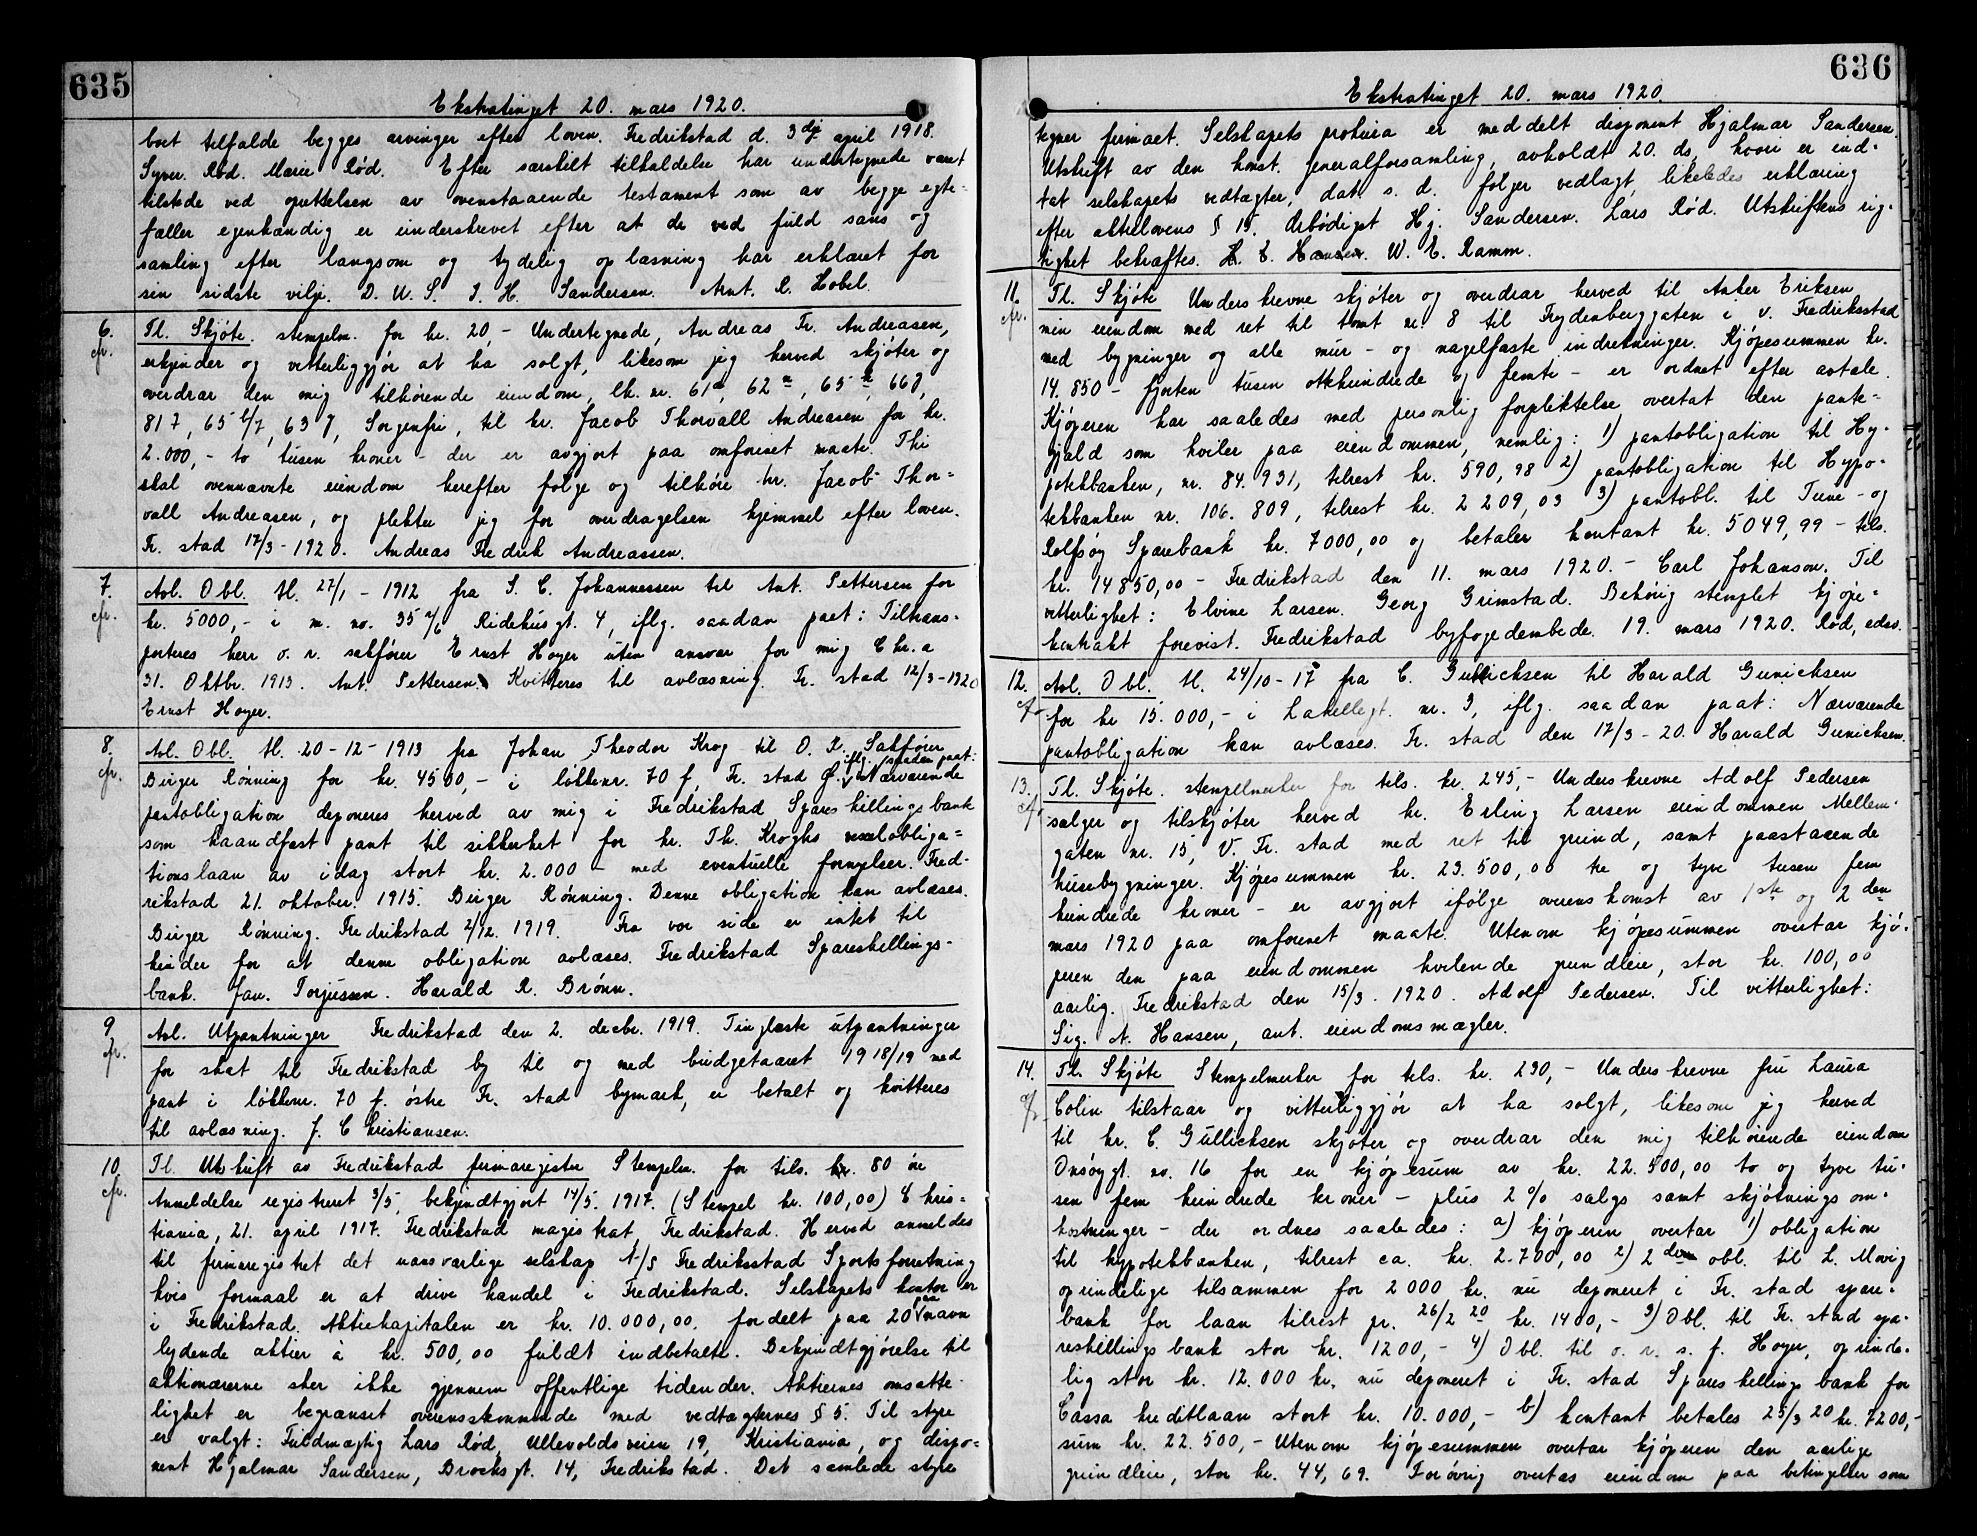 635
Ekstratinget 20. mars 1920.
bort tilfalde begges arvinger efter loven. Fredrikstad d. 3dje april 1918.
Syver Rød. Marie Rød. Efter særskilt tilkaldelse har undertegnede været
tilstede ved oprettelsen av ovenstaaende testament som av begge egte-
fæller egenhændig er underskrevet efter at de ved fuld sans og
samling efter langsom og tydelig oplæsning har erklæret for
sin sidste vilje. D. U. S. J. H. Sandersen. Arnt. R. Hobel.
6. cfr. Tl. Skjøte. stempelm. for kr. 20,- Undertegnede, Andreas Fr. Andreasen,
erkjender og vitterliggjør at ha solgt, likesom jeg herved skjøter og
overdrar den mig tilhørende eiendom, lk. nr. 61a, 62 , 65 , 66 ,
817, 65 /7, 63 7, Sorgenfri, til hr. Jacob Thorvall Andreasen for kr.
2.000,- to tusen kroner - der er avgjort paa omforenet maate. Thi
skal ovennævnte eiendom herefter følge og tilhøre hr. Jacob Thor-
vall Andreasen, og plikter jeg for overdragelsen hjemmel efter loven.
Fr. stad 17/3-1920. Andreas Fredrik Andreassen.
7. cfr. Avl. Obl. tl. 27/1 - 1912 fra S. C. Johannessen til Ant. Pettersen for
kr. 5000,- i m. no. 35 Ridehusgt. 4, iflg. saadan paat: Tiltrans-
porteres herr o. r. sakfører Ernst Høyer uten ansvar for mig Chr.a
31. Oktbr. 1913. Ant. Pettersen. Kvitteres til avlæsning. Fr. stad 12/3-1920
Ernst Høyer.
8. cfr. Avl. Obl. tl. 20-12-1913 fra Johan Theodor Krog til O. R. Sakfører
Birger Rønning for kr. 4500,- i løkkenr. 70 f, Fr. stad Ø. iflg. saadan paat: Nærværende
pantobligation deponeres herved av mig i Fredrikstad Spareskillingsbank
som haandfast pant til sikkerhet for hr. Th. Kroghs vexelobliga-
tionslaan av idag stort kr. 2.000 - med eventuelle fornyelser. Fred-
rikstad 21. oktober. 1915. Birger Rønning. Denne obligation kan avlæses.
Birger Rønning. Fredrikstad 2/12. 1919. Fra vor side er intet til
hinder for at denne obligation avlæses. Fredrikstad Spareskillings-
bank. Jav. Torjussen. Harald R. Brønn.
9 cfr. Avl. Utpantninger Fredrikstad den 2. decbr. 1919. Tinglæste utpantninger
for skat til Fredrikstad by til og med budgetaaret 1918/19 med
pant i løkkenr. 70 f. østre Fr. stad bymark, er betalt og kvitteres
til avlæsning. J. Christiansen.
10. cfr. Tl. Utskrift av Fredrikstad firmaregister Stempelm. for tils. kr. 80 øre
Anmeldelse registreret 3/5, bekjendtgjort 14/5. 1917. (Stempel kr. 100,00) Chris-
tiania, 21. april 1917. Fredrikstad magistrat, Fredrikstad. Herved anmeldes
til firmaregistret det uansvarlige selskap A/S Fredriksstad Sportsforretning
hvis formaal er at drive handel i Fredrikstad. Selskapets kontor er
i Fredrikstad. Aktiekapitalen er kr. 10.000,00. fordelt paa 20 paa navn
lydende aktier à kr. 500,00 fuldt indbetalte. Bekjendtgjørelse til
aktionærerne sker ikke gjennem offentlige tidender. Aktiernes omsætte-
lighet er begrænset overensstemmende med vedtægternes § 5. Til styre
er valgt: Fuldmægtig Lars Rød, Ullevoldsveien 19, Kristiania, og dispo-
nent Hjalmar Sandersen, Brochsgt. 14, Fredrikstad. Det samlede styre
636
Ekstratinget 20. mars 1920.
tegner firmaet. Selskapets prokura er meddelt disponent Hjalmar Sandersen.
Utskrift av den konst. generalforsamling, avholdt 20. ds, hvori er ind-
tat selskapets vedtægter, dat. s. d. følger vedlagt, likeledes erklæring
efter aktielovens § 15. Ærbødigst Hj. Sandersen. Lars Rød. Utskriftens rig-
tighet bekræftes. H. E. Hansen. W. E. Ramm.
11. cfr. Tl. Skjøte Underskrevne skjøter og overdrar herved til Anker Eriksen
min eiendom med ret til tomt nr. 8 til Frydenberggaten i v. Fredriksstad
med bygninger og alle mur- og nagelfaste indretninger. Kjøpesummen kr.
14.850 - fjorten tusen ottehundrede og femti - er ordnet efter avtale.
Kjøperen har saaledes med personlig forpliktelse overtat den pante-
gjæld som hviler paa eiendommen, nemlig: 1) pantobligation til Hy-
potekbanken, nr. 84.931, tilrest kr. 590,98 2) pantobligation til Hypo-
tekbanken nr. 106.809, tilrest kr. 2209,03 3) pantobl. til Tune- og
Rolfsøy Sparebank kr. 7000,00 og betaler kontant kr. 5049,99 - tils.
kr. 14850,00 - Fredrikstad den 11. mars 1920. - Carl Johanson. Til
vitterlighet: Elvine Larsen. Georg Grimstad. Behørig stemplet kjøpe-
kontrakt forevist. Fredrikstad byfogedembede 19. mars 1920. Rød, edsv.
12. cfr. Avl. Obl. tl. 24/10-17 fra C. Gullicksen til Harald Gunicksen
for kr 15.000,- i Lakellegt. nr. 3, iflg. saadan paat: Nærværende
pantobligation kan avlæses. Fr. stad den 17/3-20. Harald Gunicksen.
13. cfr. Tl. Skjøte. stempelmerker for tils. kr. 245,- Underskrevne Adolf Pedersen
sælger og tilskjøter herved hr. Erling Larsen eiendommen Mellem-
gaten nr. 15, V. Fr. stad med ret til grund, samt paastaaende
husebygninger. Kjøpesummen kr. 23.500,00 tre og tyve tusen fem
hundrede kroner - er avgjort ifølge overenskomst av 1ste og 2den
mars 1920 paa omforenet maate. Utenom kjøpesummen overtar kjø-
peren den paa eiendommen hvilende grundleie, stor kr. 100,00
aarlig. Fredrikstad den 15/3. 1920. Adolf Pedersen. Til vitterlighet:
Sig. A. Hansen, aut. eiendomsmægler.
14. cfr. Tl. Skjøte Stempelmerker for tils. kr. 230,- Underskrevne fru Laura
Colin tilstaar og vitterliggjør at ha solgt, likesom jeg herved
til hr. C. Gullicksen skjøter og overdrar den mig tilhørende eiendom
Onsøygt. no. 16 for en kjøpesum av kr. 22.500,00 to og tyve tu-
sen fem hundrede kroner - plus 2 % salgs samt skjøtningsom-
kostninger - der ordnes saaledes: a) kjøperen overtar 1) obligation
til hypotekbanken, tilrest ca. kr. 2.700,00 2) 2den obl. til L. Movig
oprindelige tilsammen for 2000 kr. nu deponeret i Fr. stad spare-
bank for laan tilrest pr. 26/2 20 kr. 1400,- 3) Obl. til Fr. stad spa-
reskillingsbank stor kr. 1200,- 4) Obl. til o. r. s. f. Høyer, oprinde-
lig stor kr. 12.000 kr. nu deponeret i Fr. stad Spareskillingsbank for
Cassakreditlaan stort kr. 10.000,- b) kontant betales 25/3 20 kr. 7200,-
sum kr. 22.500,- Utenom kjøpesummen overtar kjøperen den aarlige
grundleie, stor kr. 44,69. Forøvrig overtas eiendom paa betingelser som